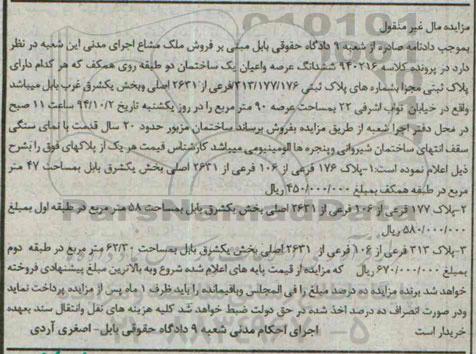 مزایده مال غیر منقول
بموجب دادنامه صادره از شعبه ۹ دادگاه حقوقی بابل مبنی بر فروش ملک مشاع اجرای مدنی این شعبه در نظر
دارد در پرونده کلاسه ۹۴۰۲۱۶ ششدانگ عرصه واعیان یک ساختمان دو طبقه روی همکف که هر کدام دارای
پلاک ثبتی مجزا بشماره های پلاک ثبتی ۳۱۳/۱۷۷/۱۷۶/فرعی از ۲۶۳۱ اصلی وبخش یکشرق غرب بابل میباشد
واقع در خیابان نواب اشرفی ۲۲ بمساحت عرصه ۹۰ متر مربع را در روز یکشنبه تاریخ ۹۴/۱۰/۲ ساعت ۱۱ صبح
در محل دفتر اجرا شعبه از طریق مزایده بفروش برساند ساختمان مزبور حدود ۲۰ سال قدمت با نمای سنگی
سقف انتهای ساختمان شیروانی وپنجره ها الومینیومی میباشد کارشناس قیمت هر یک از پلاکهای فوق را بشرح
ذیل اعلام نموده است:۱-پلاک ۱۷۶ فرعی از ۱۰۶ فرعی از ۲۶۳۱ اصلی بخش یکشرق بابل بمساحت ۴۷ متر
مربع در طبقه همکف بمبلغ ۴۵۰/۰۰۰/۰۰۰ ریال
۲-پلاک ۱۷۷ فرعی از ۱۰۶ فرعی از ۲۶۳۱ اصلی بخش یکشرق بابل بمساحت ۵۸ متر مربع در طبقه اول بمبلغ
۵۸۰/۰۰۰/۰۰۰ ریال
۳-پلاک ۳۱۳ فرعی از ۱۰۶ فرعی از ۲۶۳۱ اصلی بخش یکشرق بابل بمساحت ۶۲/۳۰ متر مربع در طبقه دوم
بمبلغ ۶۷۰/۰۰۰/۰۰۰ ریال که مزایده از قیمت پایه های اعلام شده شروع وبه بالاترین مبلغ پیشنهادی فروخته
خواهد شد برنده مزایده ده درصد مبلغ را فی المجلس وباقیمانده را باید ظرف ۱ ماه پس از مزایده پرداخت نماید
ودر صورت انصراف ده درصد اخذ شده در حق دولت ضبط خواهد شد کلیه هزینه های نقل وانتقال سند بعهده
خریدار است اجرای احکام مدنی شعبه ۹ دادگاه حقوقی بابل- اصغری آردی